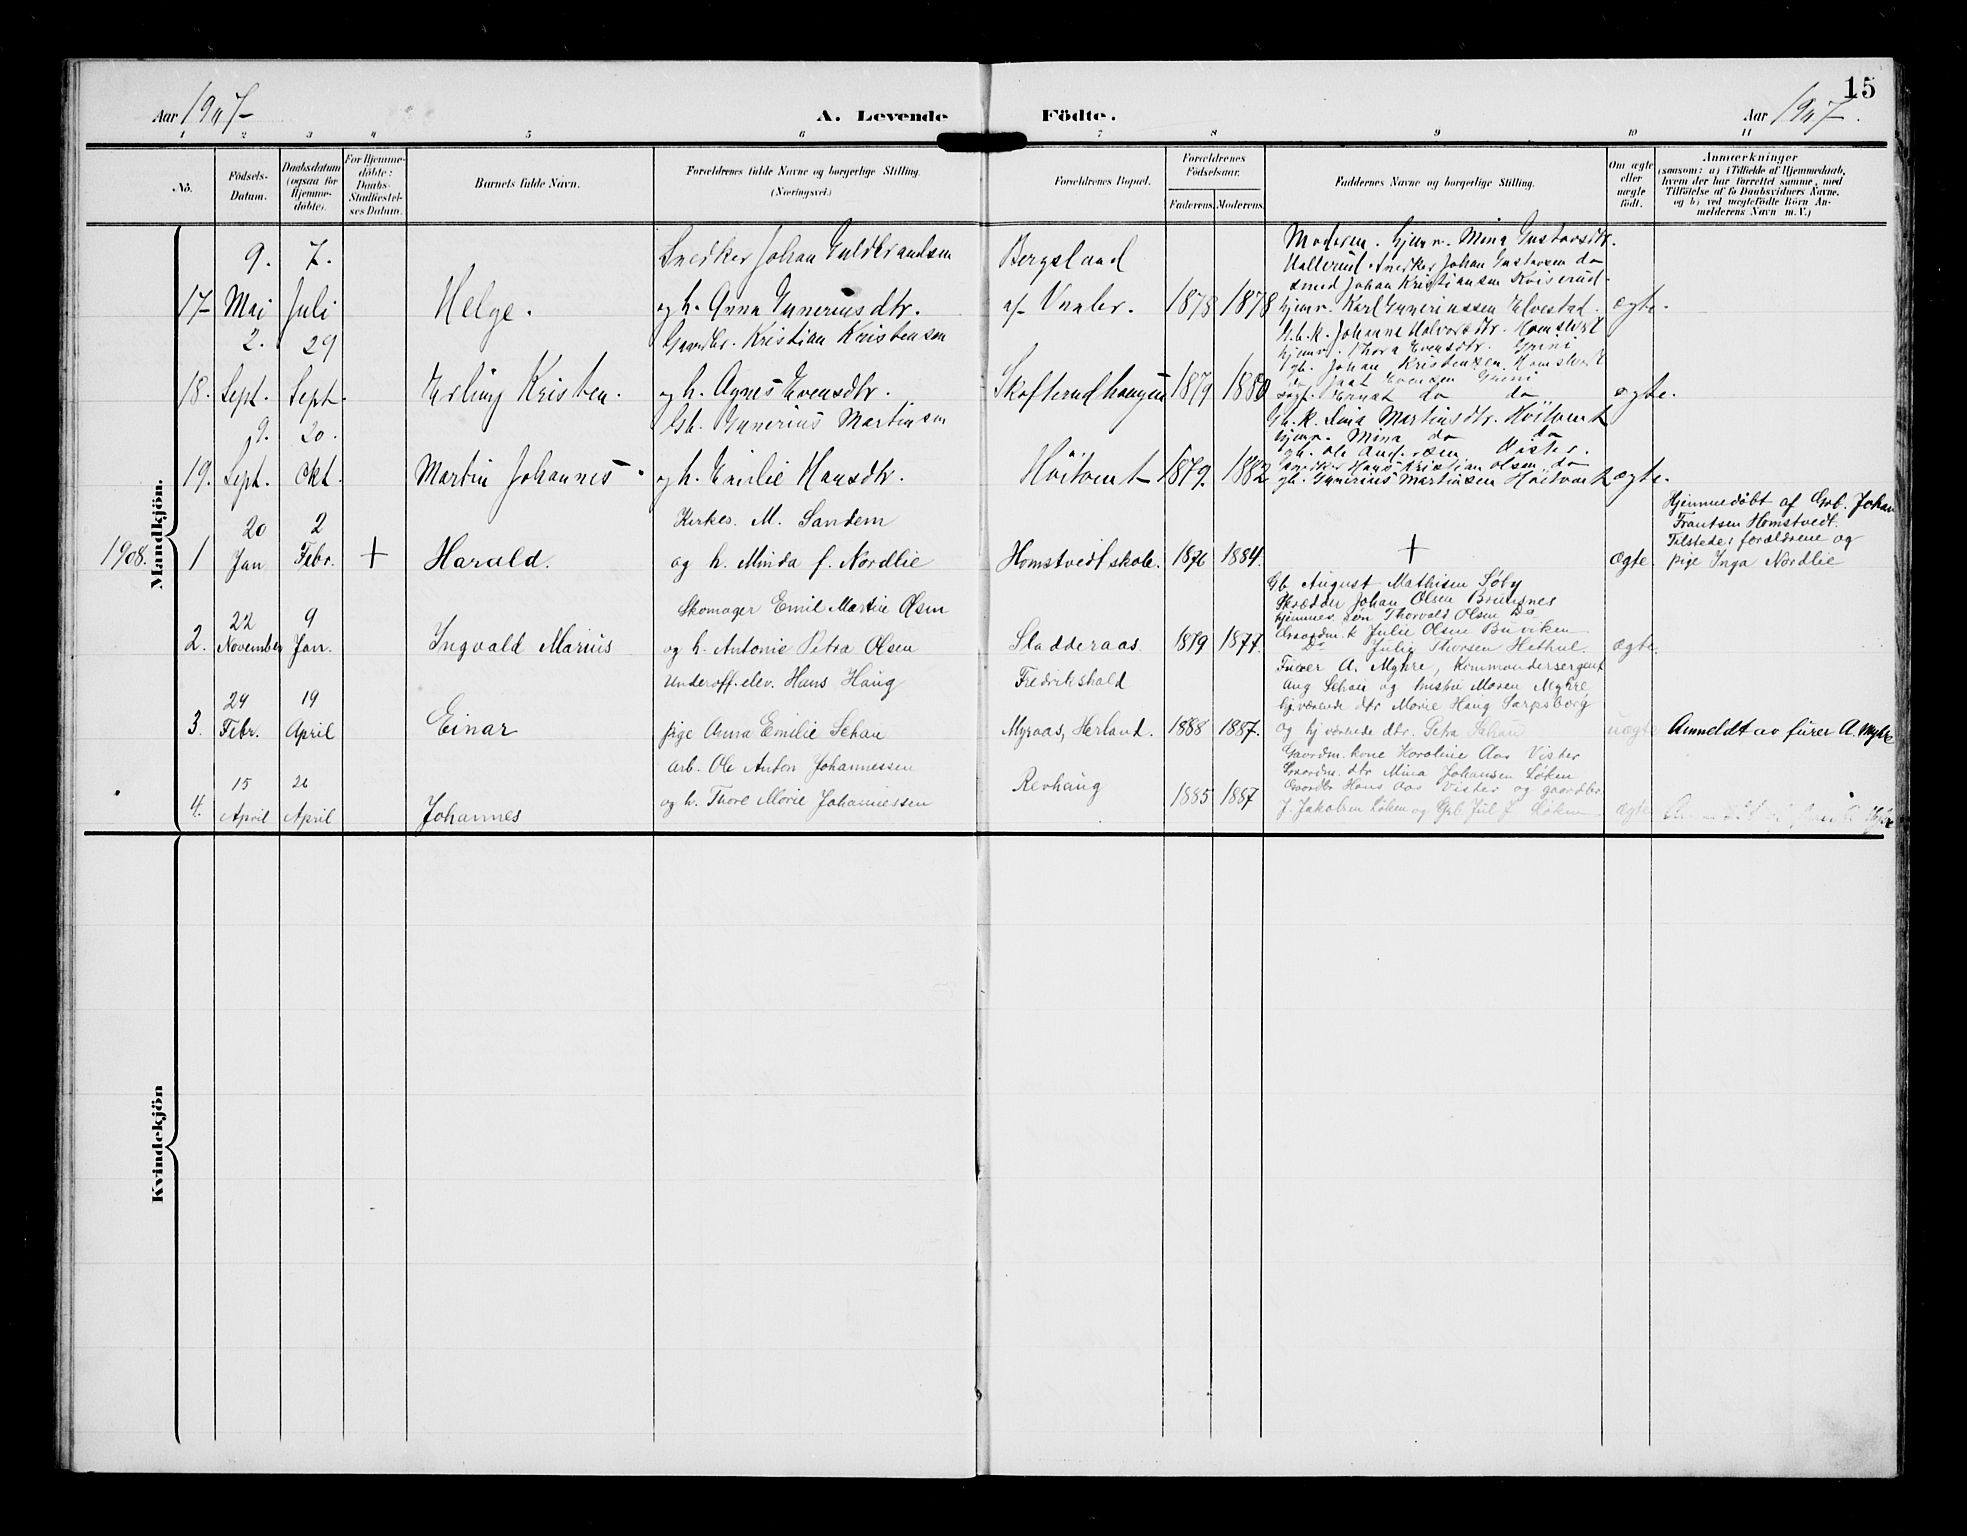 15
Aar 1907
A. Levende Födte.
Aar 1907.
1 2 3 4 5 6 7 8 9 10 11
No.
Födsels-
Datum.
Daabsdatum
(ogsaa for
Hjemme-
döbte).
For Hjemme-
döbte:
Daabs-
Stadfæstel-
ses Datum.
Barnets fulde Navn.
Forældrenes fulde Navne og borgerlige Stilling.
(Næringsvei.)
Forældrenes Bopæl.
Forældrenes
Födselsaar.
Faderens. Moderens.
Faddernes Navne og borgerlige Stilling.
Om ægte
eller
uægte
født.
Anmærkninger
(saasom: a) i Tilfælde af Hjemmedaab,
hvem der har forrettet samme, med
Tilföielse af to Daabsvidners Navne,
og b) ved uægtefödte Börn An-
melderens Navn m. V.)
Mandkjön.
17
9.
Mai
7.
Juli
Helge.
Snedker Johan Guldbrandsen
og h. Anna Guneriusdtr.
Bergsland
af Vaaler.
1878
1878
Moderen. hjemv. Mina Gustavsdtr.
Hallerud Snedker Johan Gustavsen do
smed Johan Kristiansen Kviserud
hjemv. Karl Gunerinssen Elvestad.
ægte.
18.
2.
Sept.
29
Sept.
Erling Kristen.
Gaardbr. Kristian Kristensen
og h. Agnes Evensdtr.
Skofterudhaugen
1879
1880
Gb. k. Johanne Halvorsdtr. Homstvet
hjemv. Thora Evensdtr. Grini
gb. Johan Kristensen Homstvet
Evensen Grini
Ernst do do
ægte.
19.
9.
Sept.
20.
Okt.
Martin Johannes.
Gb. Gunerius Martinsen
og h. Emilie Hansdtr.
Höitvent
1879.
1882
Gb. k. Lina Martinsdtr. Höitvent
hjemv. Mina do do
gb. Ole And. sen Vister.
Snedker Hans Kristian Olsen do
gb. Gunerius Martinsen Höitvent
ægte.
1908.
1
20
Jan
2
Febr.
+
Harald.
Kirkes. M. Sandem
og h. Minda f. Nordlie
Homstvedt skole.
1876
1884.
+
ægte.
Hjemmedöbt af Grb. Johan
Frantsen Homstvedt.
Tilstede: forældrene og
pige Inga Nordlie
2.
22
November
9
Jan.
Ingvald Marius
Skomager Emil Martin Olsen
og h. Antonie Petra Olsen
Sladderaas
1879
1877.
Gb. August Mathisen Söby
Skrædder Johan Olsen Brunsnes
hjemmev. søn Thorvald Olsen Do
Gaardm. k Julie Olsen Buviken
Do Julie Thorsen Hethul.
ægte.
3.
24
Febr.
19
April
Einar
Underoff.elev. Hans Haug
pige Anna Emilie Schau
Fredrikshald
Myraas, Herland.
1888
1887.
Furer A. Myhre, Kommandersergent
Aug Schau og hustru Maren Myhre
hjværende dtr Marie Haug Sarpsborg
og hjværende dtr. Petra Schau
uægte
Anmeldt av furer A. Myhre
4.
15
April
26
April
Johannes
Arb. Ole Anton Johannessen
og h. Thore Marie Johannessen
Revhaug
1885
1887
Gaardm. kone Karoline Aas Vister
Gaardm. dtr Mina Johansen Løken
Gaardbr Hans Aas Vister og gaardbr
J. Jakobsen Løken og Grb. Jul. J. Løken
ægte
Kvindekjön